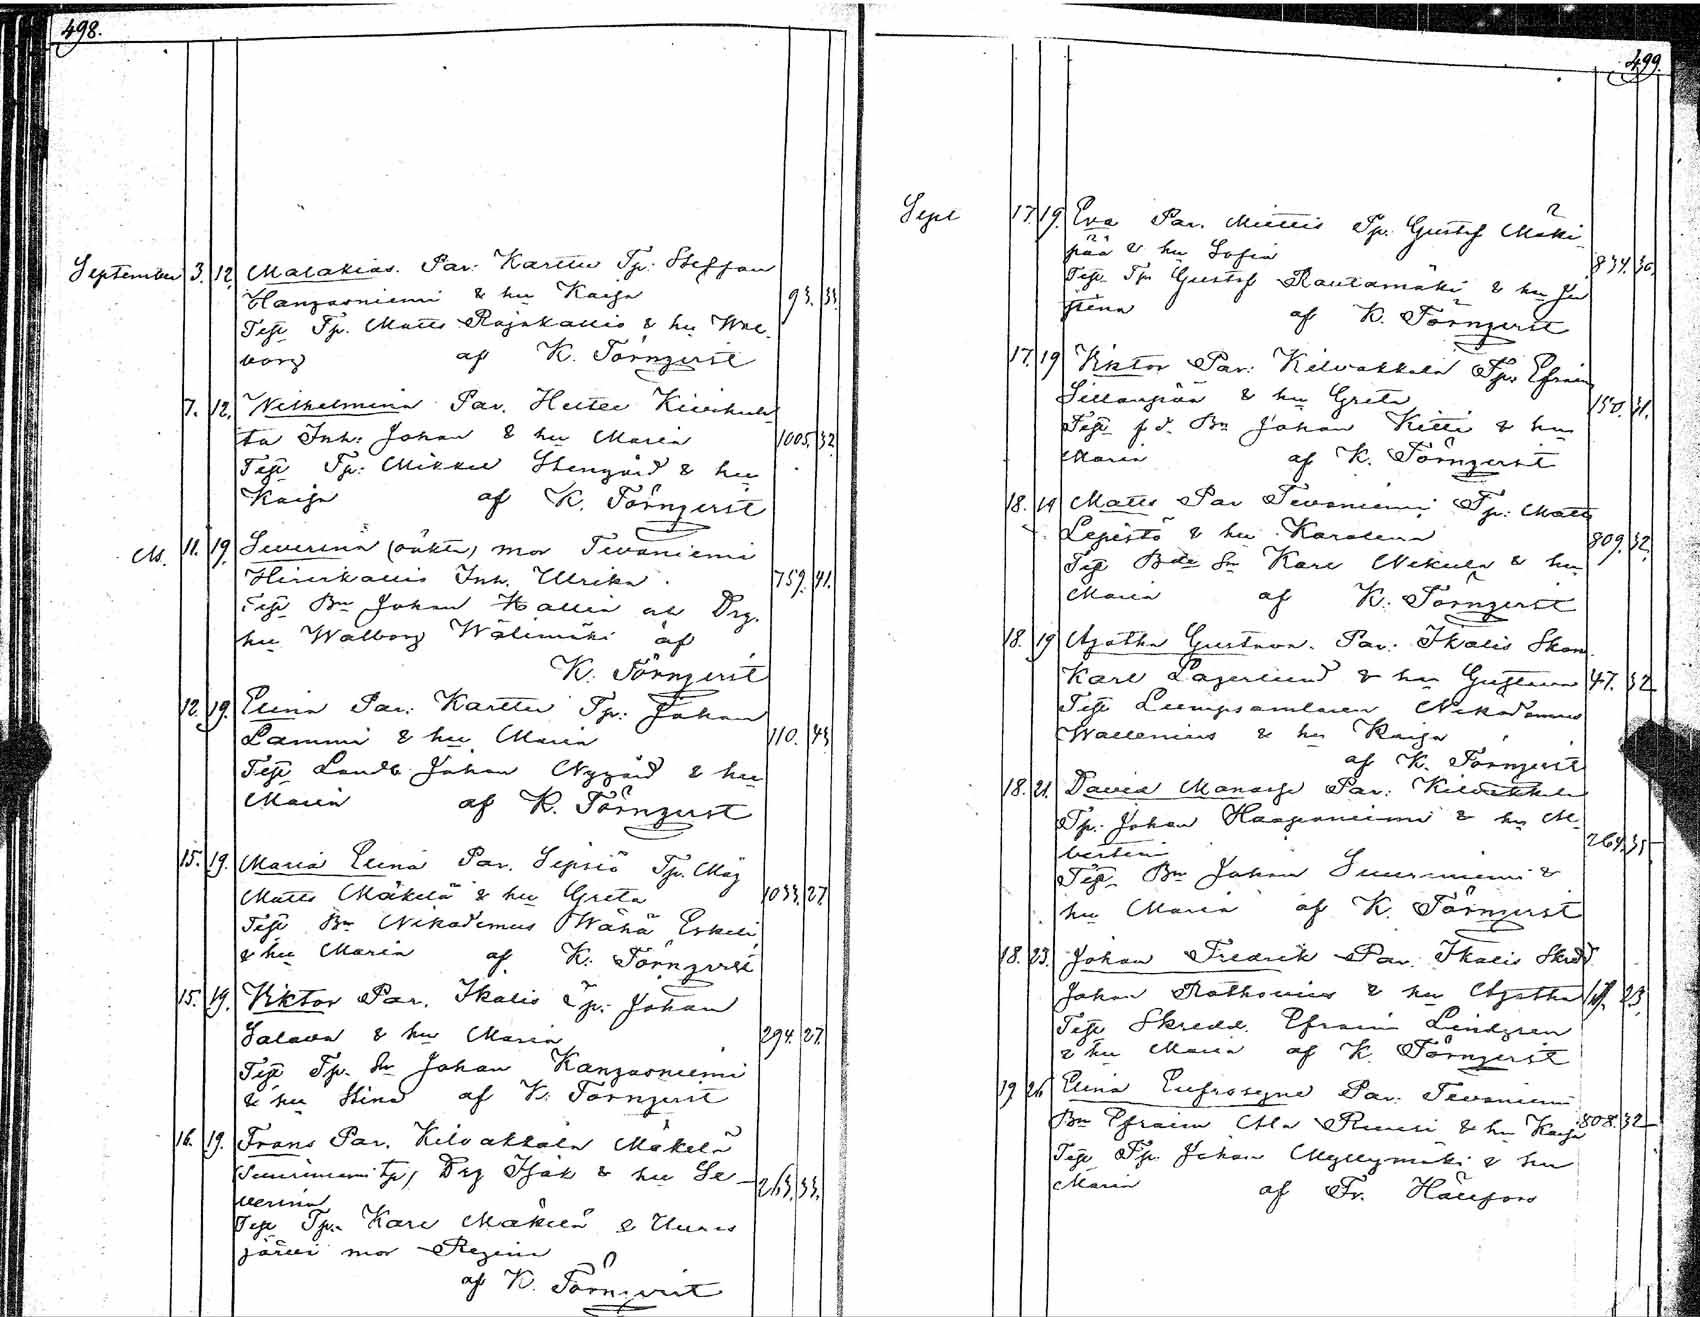 498.
September 3. 12. Malakias. Par: Karttu Tp: Steffan
Kangasniemi & hu Kaisa 93. 33.
Test Tp. Matts Rajakallio & hu Wal-
borg af K. Törnqvist
7. 12. Wilhelmina Par. Heittee
ta Inh: Johan & hu Maria 1005. 32.
Test Tp: Mikkel Stengård & hu
Kaisa af K. Törnqvist
11. 19. Severina (oäkta) mor Tevaniemi
Inh. Ulrika. 759. 41.
Test Bn Johan Kallia
hu Walborg Wälimäki af
K. Törnqvist
12. 19. Elina Par: Karttu Tp: Johan
Lammi & hu Maria 110. 43.
Test Landb. Johan Nygård & hu
Maria af K. Törnqvist
15. 19. Maria Elina Par. Sipsiö Tp. Måg
Matts Mäkelä & hu Greta 1033. 27.
Test Bn Nikodemus Wähä Eskeli
& hu Maria af K. Törnqvist
15. 19. Viktor Par. Ikalis Tp: Johan
Salava & hu Maria 294. 27.
Test Tp. Sn Johan Kangasniemi
& hu Stina af K. Törnqvist
16. 19. Frans Par. Kilvakkala Mäkelä
(Suuriniemi tp) Drg Isak & hu Se-
verina 263. 33.
Test Tp. Karl Mäkelä &
järvi mor Regina
af K. Törnqvist
499.
Sept 17. 19. Eva Par. Miettis Tp: Gustaf Mäki-
pää & hu Sofia 834. 36.
Test Tp Gustaf Rautamäki & hu Ju
stina af K. Törnqvist
17. 19 Viktor Par: Kilvakkala Tp: Efraim
Sillanpää & hu Greta 150. 31.
Test f.d. Bn Johan Kitti & hu
Maria af K. Törnqvist
18. 19 Matts Par Tevaniemi Tp: Matts
Lepistö & hu Karolina 809. 32.
Test Bde Sn Karl Nikula & hu
Maria af K. Törnqvist
18. 19 Agatha Gustava. Par: Ikalis Skom.
Karl Lagerlund & hu Gustava 47. 32
Test Lumpsamlaren Nikodemus
Wallenius & hu Kaisa
af K. Törnqvist
18. 21. David Manasse Par: Kilvakkala
Tp: Johan Haapaniemi & hu Al-
bertina 264. 35
Test. Bn Johan Suuriniemi &
hu Maria af K. Törnqvist
18. 23. Johan Fredrik Par. Ikalis Skrdd
Johan Rothovius & hu Agatha 23.
Test Skredd. Efraim Lindgren
& hu Maria af K. Törnqvist
19 26 Elina Eufrosyne Par: Tevaniemi
Bn Efraim Ala & hu Kaisa 808. 32
Test Tp. Johan Myllymäki & hu
Maria af Fr. Hällfors